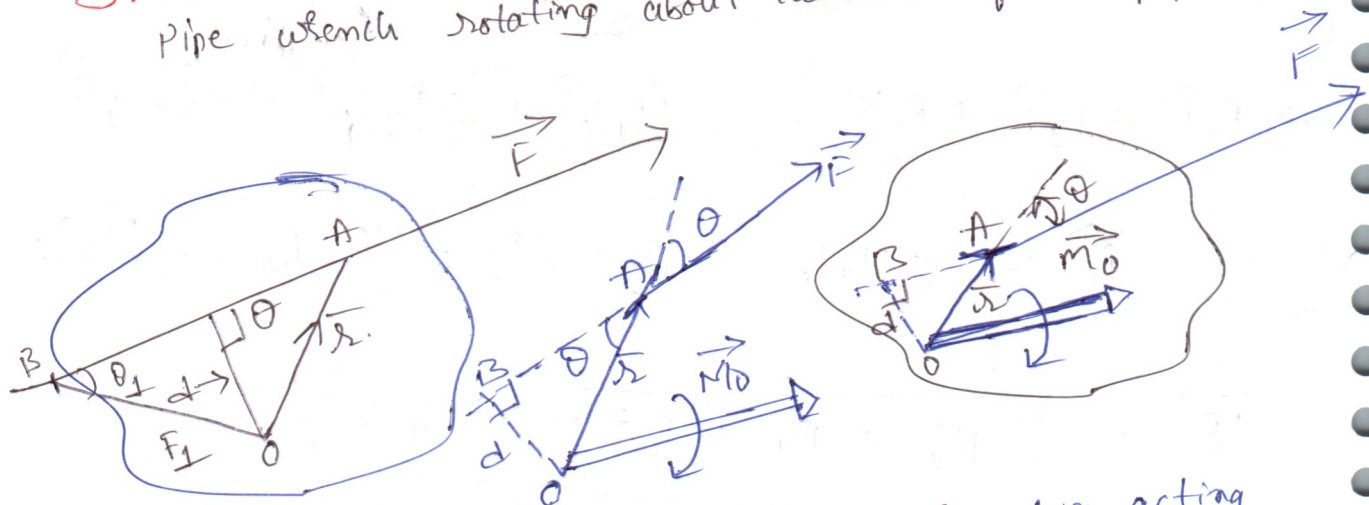 Pipe wrench rotating about
F
A
B
θ
θ1
d→
r.
F1
O
F
θ
A
B
θ
r
d
M0
O
F
θ
A
B
M0
r
d
O
acting